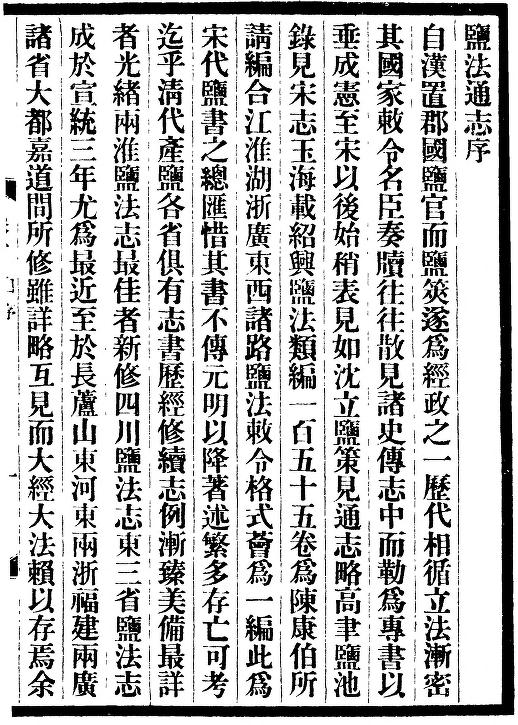 鹽法通志序
自漢置郡國鹽官而鹽筴遂爲經政之一歷代相循立法漸密
其國家敕令名臣奏牘往往散見諸史傳志中而勒爲專書以
垂成憲至宋以後始稍表見如沈立鹽策見通志略高聿鹽池
錄見宋志玉海載紹興鹽法類編一百五十五卷爲陳康伯所
請編合江淮湖浙廣東西諸路鹽法敕令格式薈爲一編此爲
宋代鹽書之總匯惜其書不傳元明以降著述繁多存亡可考
迄乎淸代產鹽各省俱有志書歷經修續志例漸臻美備最詳
者光緒兩淮鹽法志最佳者新修四川鹽法志東三省鹽法志
成於宣統三年尤爲最近至於長蘆山東河東兩浙福建兩廣
諸省大都嘉道間所修雖詳略互見而大經大法賴以存焉余